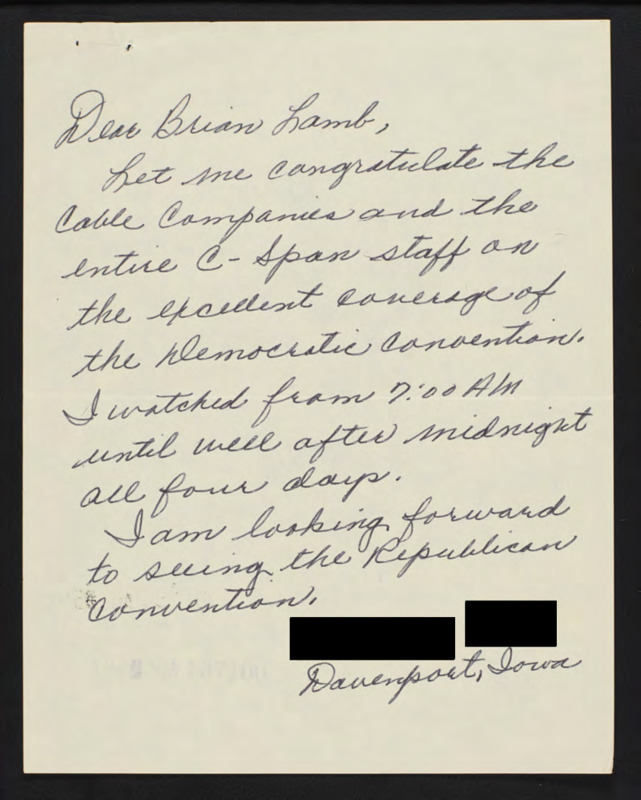 Dear Brian Lamb,
Let me congratulate the
Cable Companies and the
entire C-Span staff on
the excellent coverage of
the Democratic Convention.
I watched from 7:00 AM
until well after midnight
all four days.
I am looking forward
to seeing the Republican
Convention.
Davenport, Iowa